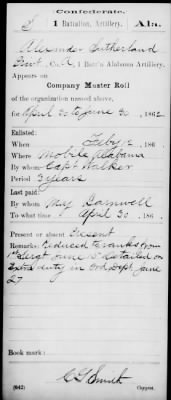 Confederate.
S 1 Battalion, Artillery. Ala.
Alexander Sutherland
Privt, Co. A, 1 Batt'n Alabama Artillery.
Appears on
Company Muster Roll
of the organization named above,
for April 30 to June 30, 1862
Enlisted:
When Feby 12, 186 .
Where Mobile Alabama
By whom Capt Walker
Period 3 years
Last paid:
By whom Maj Barnwell
To what time April 30, 186 .
Present or absent Present
Remarks: Reduced to ranks from
1st Sergt June 15 detailed on
Extra duty in Ord Dept June
27
Book mark:
(642) Copyist.